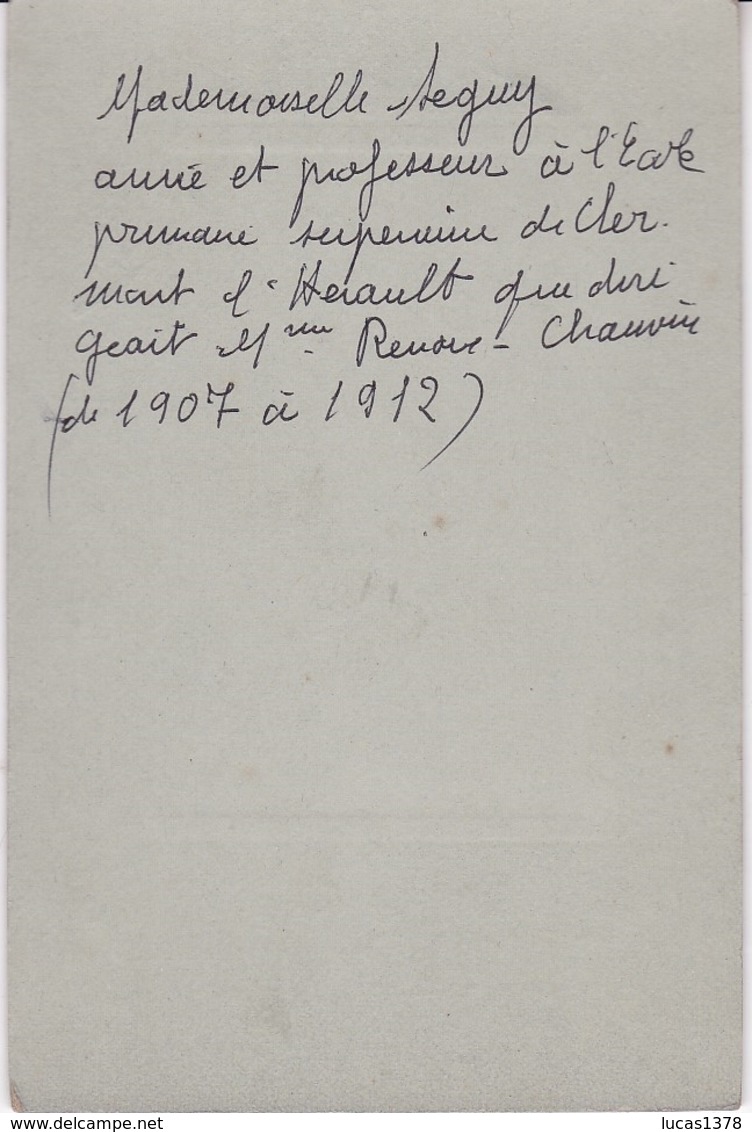 Mademoiselle Seguy
amie et professeur à l'Ecole
primaire supérieure de Cler-
mont l'Hérault que diri
geait Mme Renove - Chauvin
(de 1907 à 1912)
www.delcampe.net
lucas1378